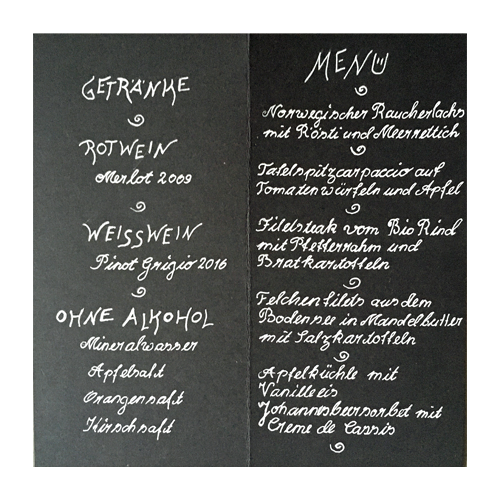 GETRÄNKE
ROTWEIN
Merlot 2009
WEISSWEIN
Pinot Grigio 2016
OHNE ALKOHOL
Mineralwasser
Apfelsaft
Orangensaft
Kirschsaft
MENÜ
Norwegischer Räucherlachs
mit Rösti und Meerrettich
Tafelspitzcarpaccio auf
Tomatenwürfeln und Apfel
Filetsteak vom Bio Rind
mit Pfefferrahm und
Bratkartoffeln
Felchenfilets aus dem
Bodensee in Mandelbutter
mit Salzkartoffeln
Apfelküchle mit
Vanilleeis
Johannesbeersorbet mit
Creme de Cassis